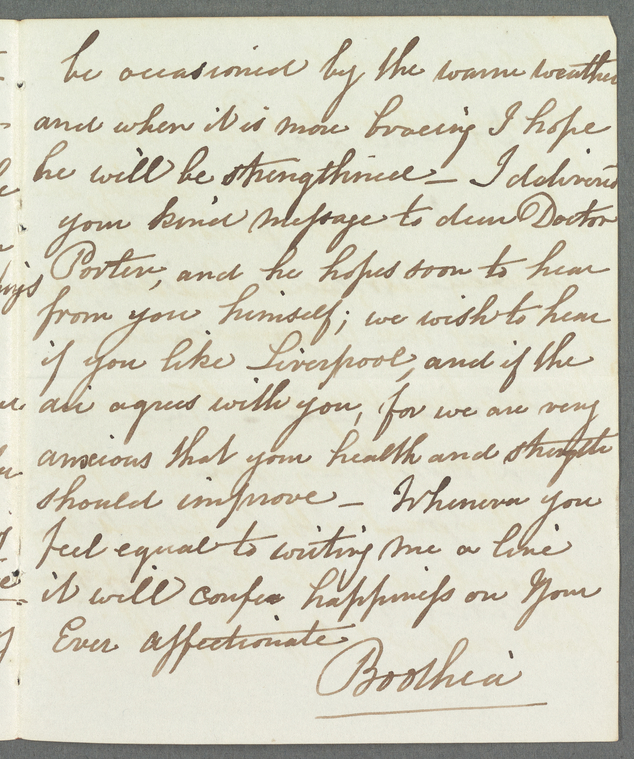 be occasioned by the warm weather
and when it is more bracing I hope
he will be strengthined – I deliver'd
your kind message to dear Doctor
Porter, and he hopes soon to hear
from you himself; we wish to hear
if you like Liverpool, and if the
air agrees with you, for we are very
anxious that your health and strength
should improve – Whenever you
feel equal to writing me a line
it will confer happiness on Your
Ever affectionate
Boothia